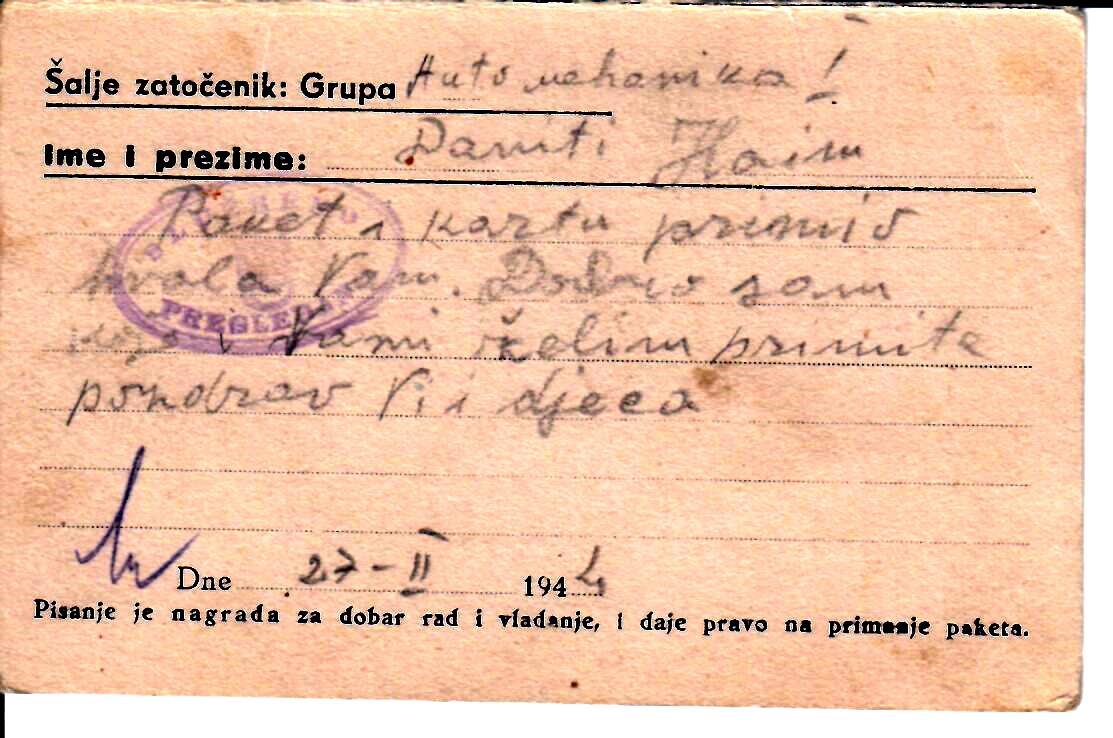 Šalje zatočenik: Grupa Auto mehanika !
Ime i prezime: Daniti Haim
Paket i kartu primio
hvala Vam. Dobro sam
koje i Vami želim primite
pozdrav Vi i djeca
PREGLEDANO
Dne 27-II 1944
Pisanje je nagrada za dobar rad i vladanje, i daje pravo na primanje paketa.